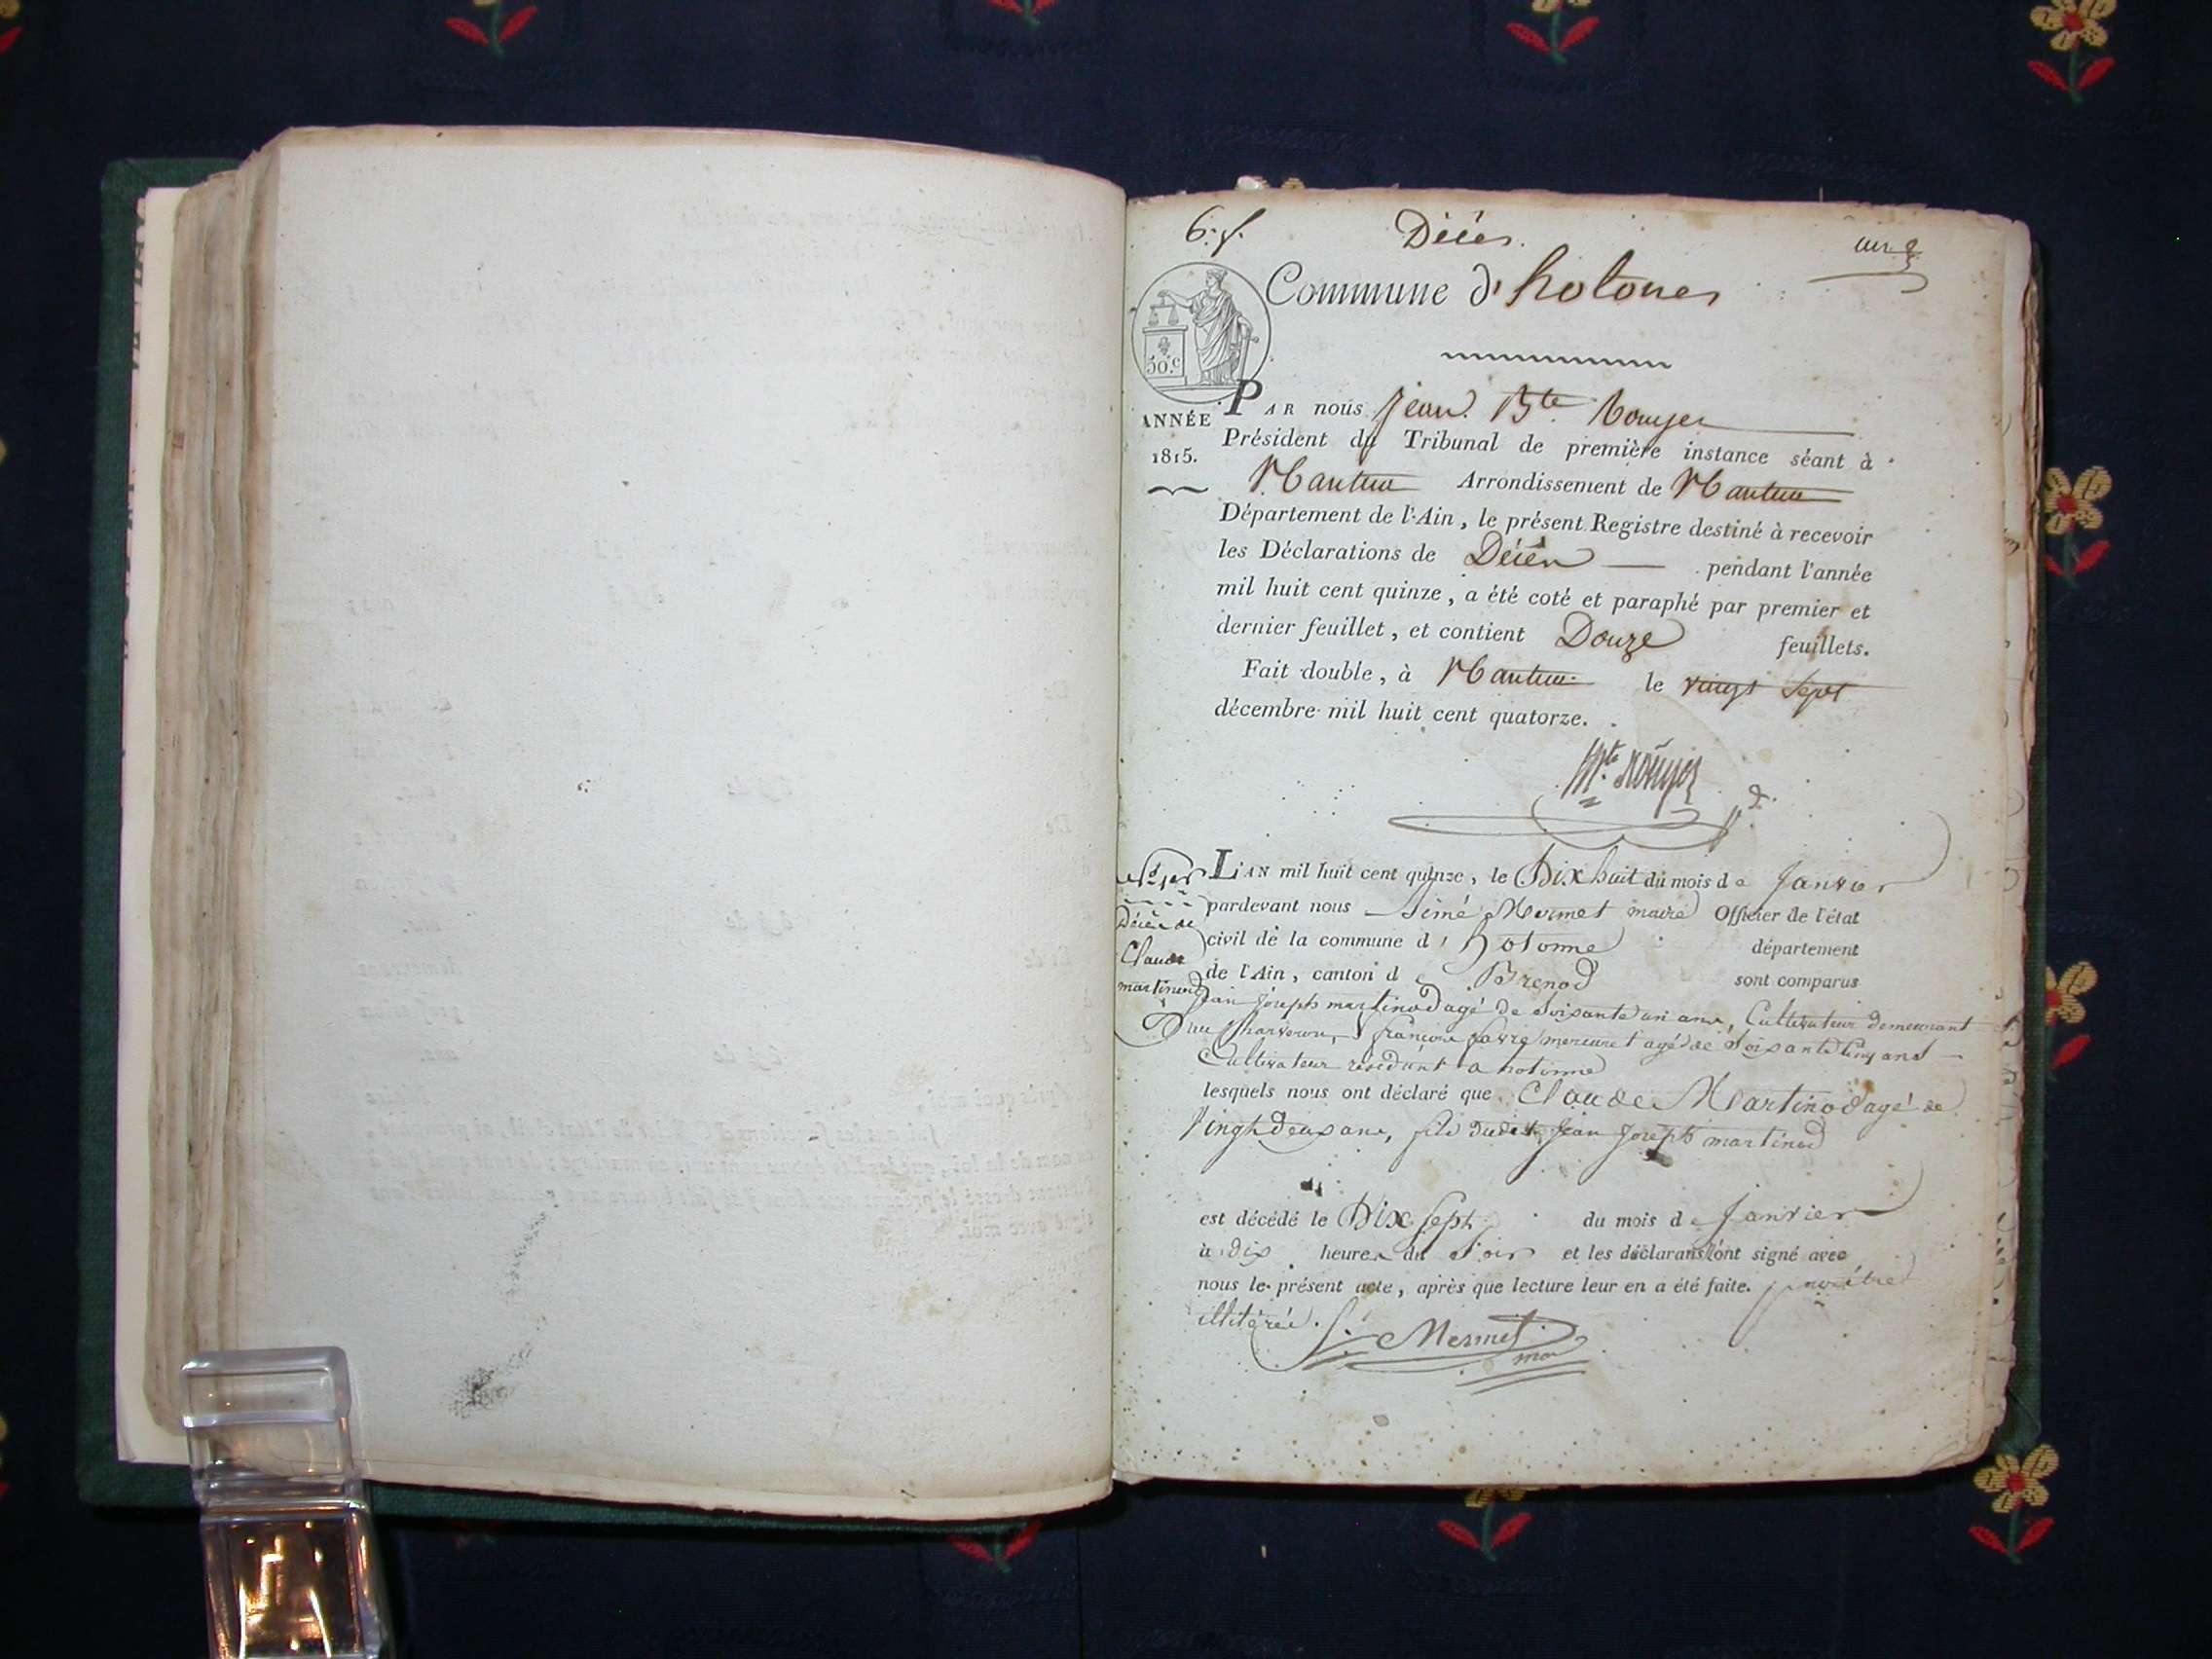 6. f. Décès.
Commune d'hotones
50.c
PAR nous Jean Bte Rouyer
ANNÉE
Président du Tribunal de première instance séant à
1815.
Nantua Arrondissement de Nantua
Département de l'Ain, le présent Registre destiné à recevoir
les Déclarations de Décès pendant l'année
mil huit cent quinze, a été coté et paraphé par premier et
dernier feuillet, et contient Douze feuillets.
Fait double, à Nantua le vingt sept
décembre mil huit cent quatorze.
L'AN mil huit cent quinze, le Dix huit du mois de Janvier
pardevant nous Aimé Mermet maire Officier de l'état
Décès de
civil de la commune d'hotonne département
Claude
de l'Ain, canton de Brenod sont comparus
martinod
Jean Joseph martinod agé de Soixante un ans, Cultivateur demeurant
françois favre mercuret agé de Soixante Cinq ans
Cultivateur résidant a hotonne
lesquels nous ont déclaré que Claude Martinod agé de
Vingt Deux ans, fils dudit Jean Joseph martinod
est décédé le Dix Sept du mois de Janvier
à Dix heures du Soir et les déclarans ont signé avec
nous le présent acte, après que lecture leur en a été faite. pour être
illitéré.
Mermet